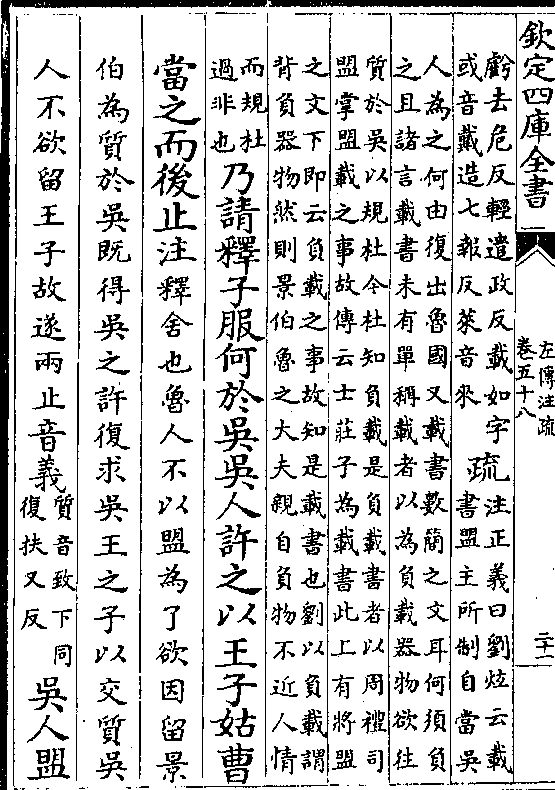 欽定四庫全書
左傳注疏
卷五十八
二十一
虧去危反輕遣政反載如字
或音戴造七報反萊音來
疏
注正義曰劉炫云載
書盟主所制自當吳
人為之何由復出魯國又載書數簡之文耳何須負
之且諸言載書未有單稱載者以為負載器物欲往
質於吳以規杜今杜知負載是負載書者以周禮司
盟掌盟載之事故傳云士莊子為載書此上有將盟
之文下即云負載之事故知是載書也劉以負載謂
背負器物然則景伯魯之大夫親自負物不近人情
而規杜
過非也
乃請釋子服何於吳吳人許之以王子姑曹
當之而後止注釋舍也魯人不以盟為了欲因留景
伯為質於吳既得吳之許復求吳王之子以交質吳
人不欲留王子故遂兩止音義
質音致下同
復扶又反
吳人盟